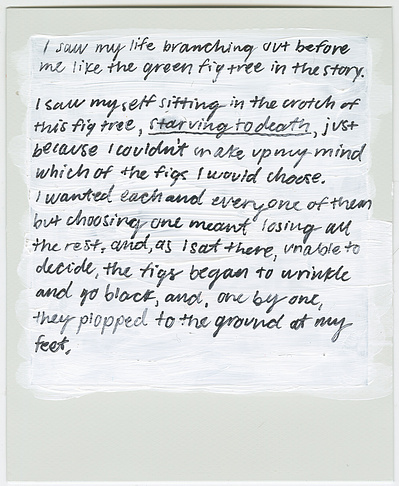 I saw my life branching out before
me like the green fig tree in the story.
I saw myself sitting in the crotch of
this fig tree, starving to death, just
because I couldn't make up my mind
which of the figs I would choose.
I wanted each and every one of them
but choosing one meant losing all
the rest, and, as I sat there, unable to
decide, the figs began to wrinkle
and go black, and, one by one,
they plopped to the ground at my
feet.